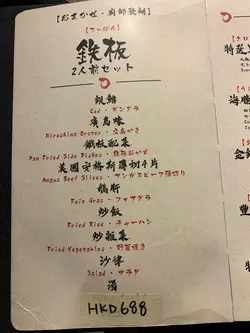 【おまかせ・廚師發辦】
【てっぱん】
鉄板
2人前セット
銀鱈
Cod・ギンダラ
廣島蠔
Hiroshima Oyster・広島かき
鐵板配菜
Pan Fried Side Dishes・鉄板おかず
美國安格斯薄切牛片
Angus Beef Slices・アンガスビーフ薄切り
鵝肝
Foie Gras・フォアグラ
炒飯
Fried Rice・チャーハン
炒雜菜
Fried Vegetables・野菜焼き
沙律
Salad・サラダ
湯
HKD688
特
海
金